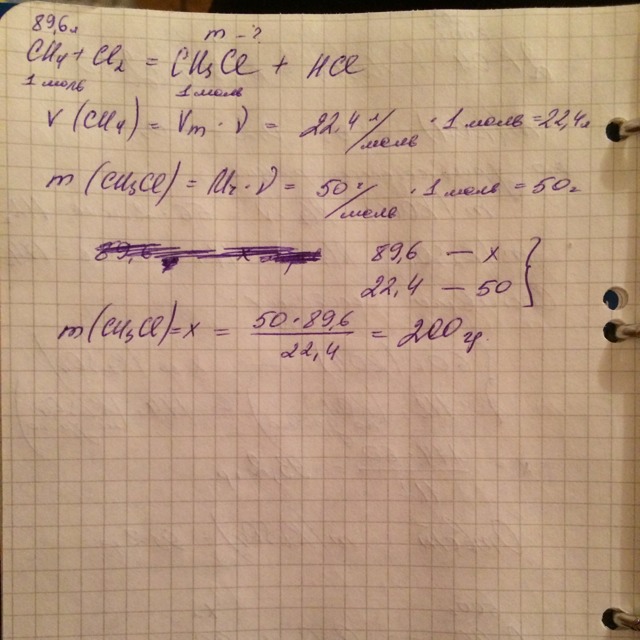 89,6л m - ?
CH4 + Cl2 = CH3Cl + HCl
1 моль 1 моль
V (CH4) = Vm · ν = 22,4 л/моль · 1 моль = 22,4л
m (CH3Cl) = Mr · ν = 50 г/моль · 1 моль = 50г
89,6 — x
22,4 — 50
m(CH3Cl) = x = 50 · 89,6 / 22,4 = 200 гр.